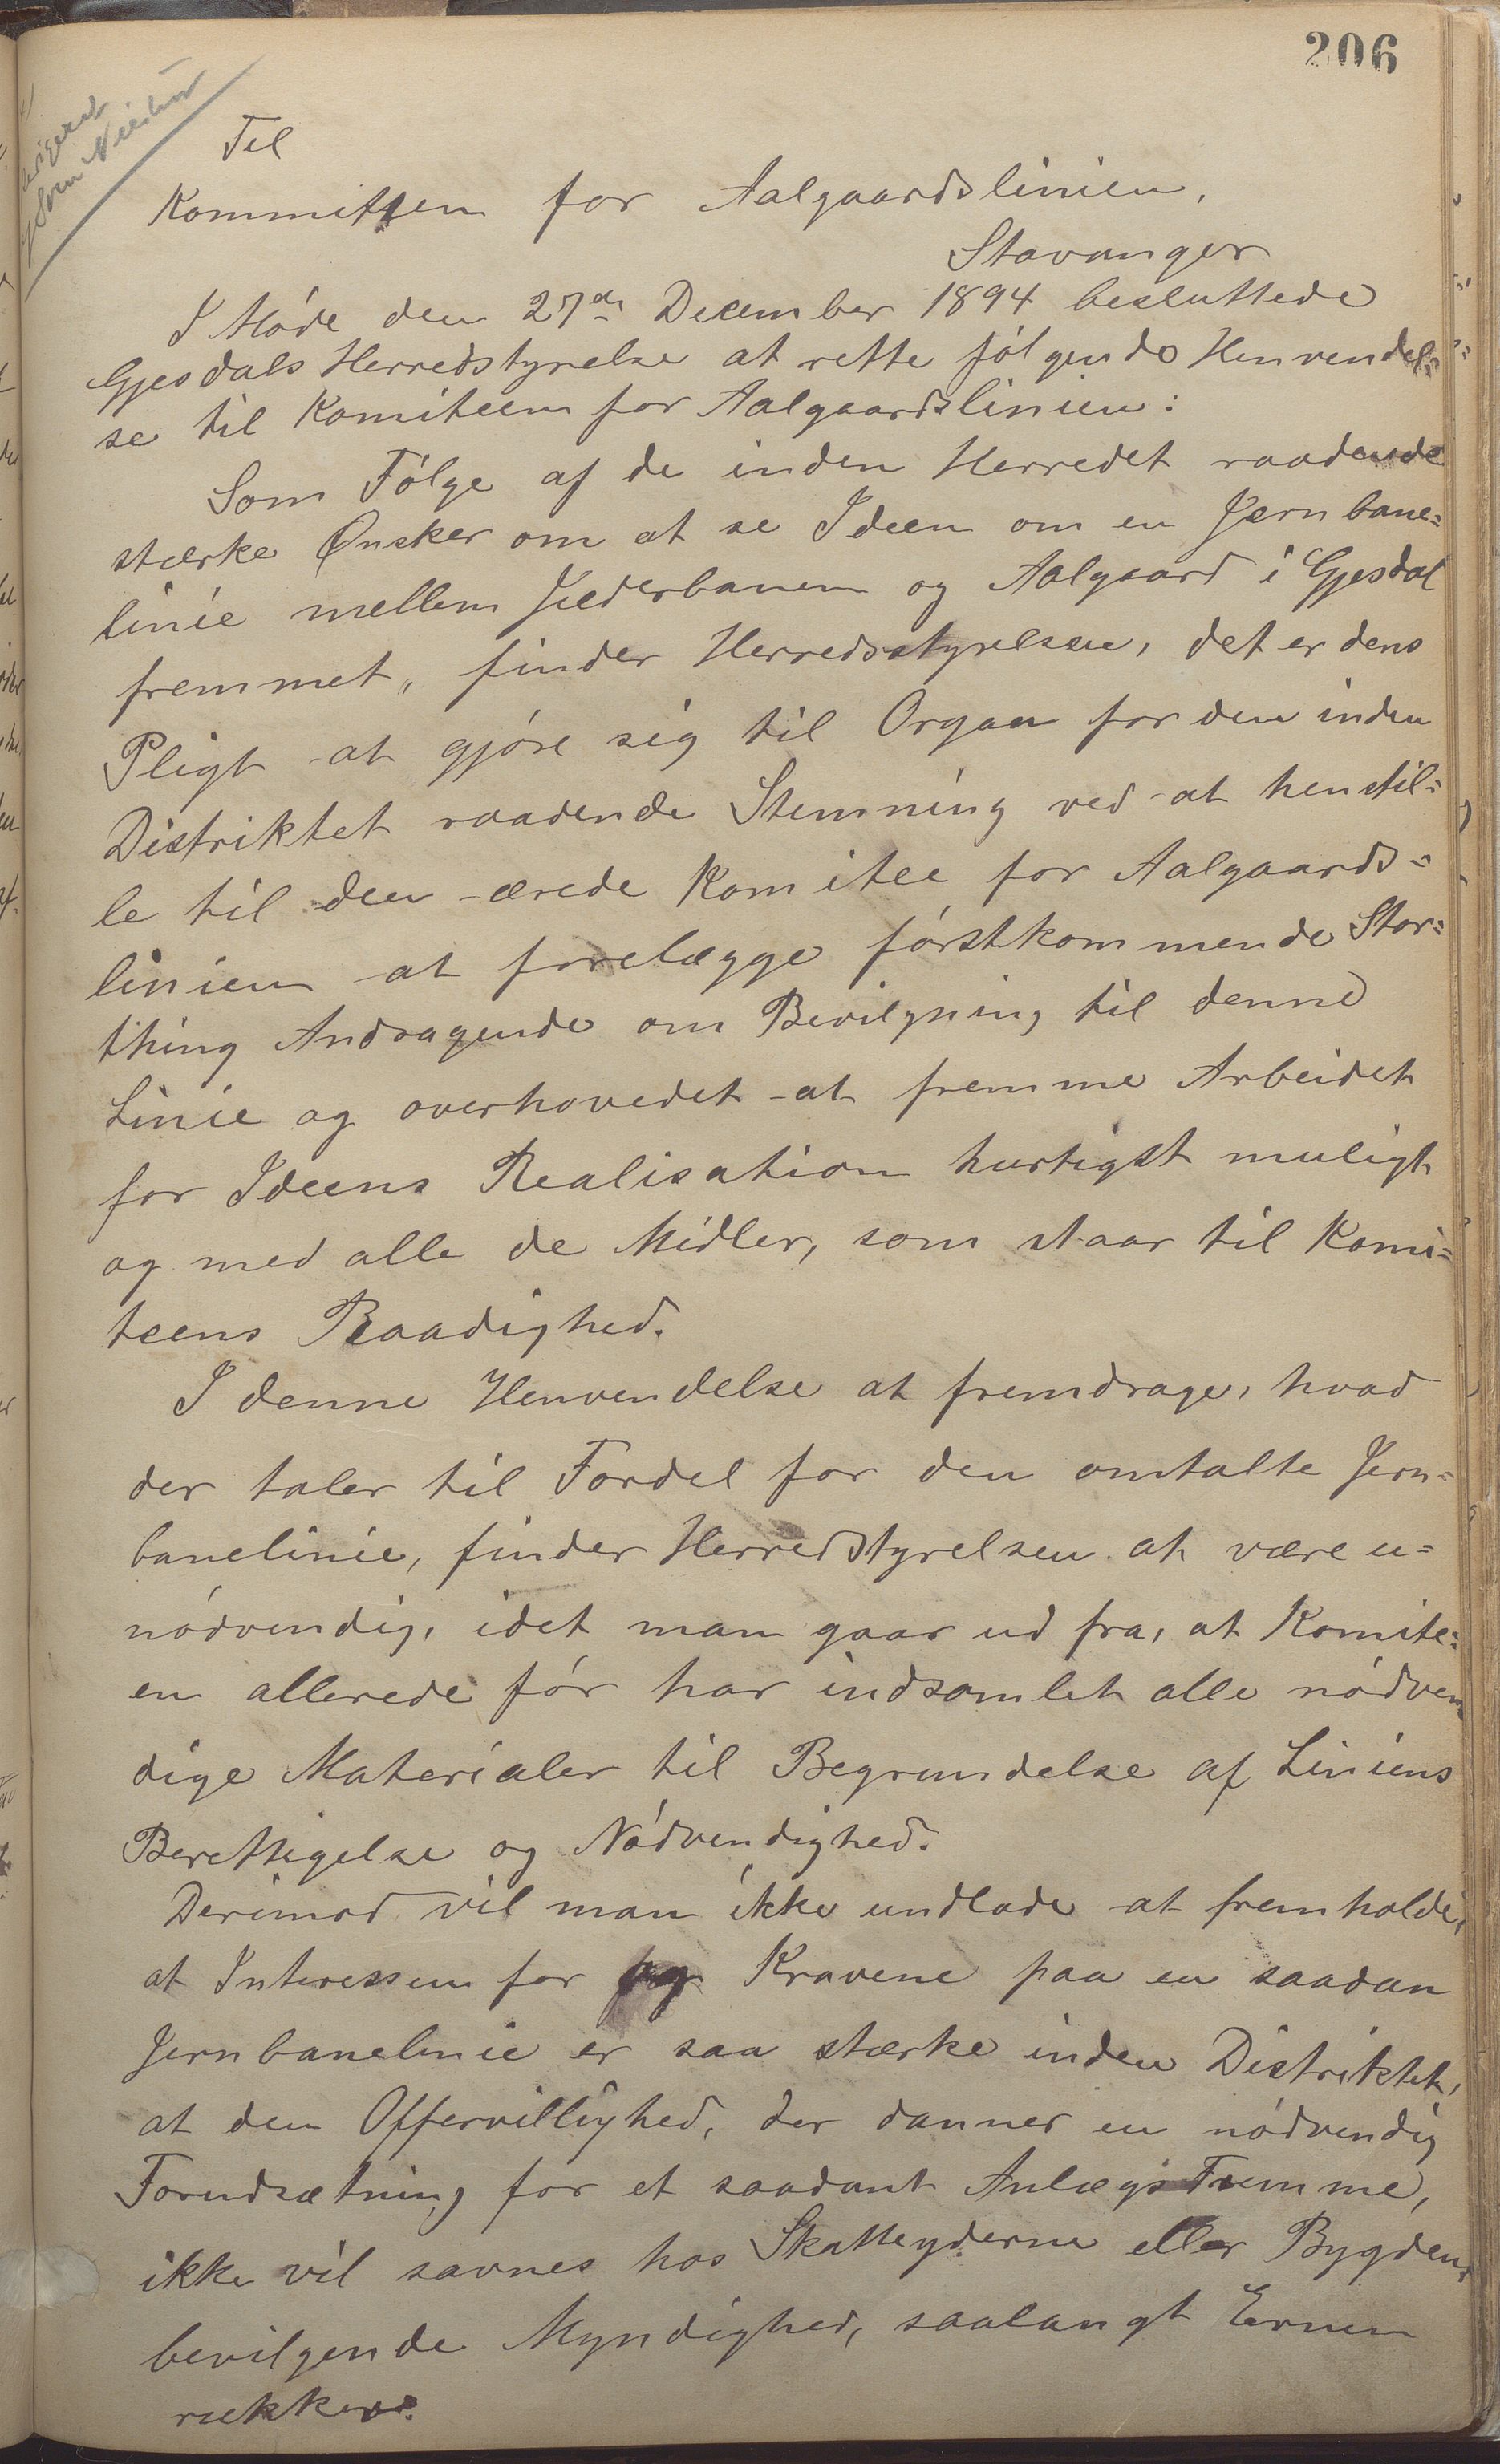 206
Til
Kommitteen for Aalgaardslinien,
Stavanger
I Møde den 27de December 1894 besluttede
Gjesdals Herredstyrelse at rette følgende Henvendel=
se til Komiteen for Aalgaardslinien:
Som Følge af de inden Herredet raadende
stærke Ønsker om at se Ideen om en Jernbane=
linie mellem Jæderbanen og Aalgaard i Gjesdal
fremmet, finder Herredsstyrelsen, det er dens
Pligt at gjøre sig til Organ for den inden
Distriktet raadende Stemning ved at henstil=
le til den ærede Komitee for Aalgaards=
linien at forelægge førstkommende Stor=
thing Andragende om Bevilgning til denne
Linie og overhovedet at fremme Arbeidet
for Ideens Realisation hurtigst muligt
og med alle de Midler, som staar til Komi=
teens Raadighed.
I denne Henvendelse at fremdrage, hvad
der taler til Fordel for den omtalte Jern=
banelinie, finder Herredstyrelsen at være u=
nødvendig, idet man gaar ud fra, at Komite=
en allerede før har indsamlet alle nødven
dige Materialer til Begrundelse af Liniens
Berettigelse og Nødvendighed.
Derimod vil man ikke undlade at fremholde,
at Interessen for og Kravene paa en saadan
Jernbanelinie er saa stærke inden Distriktet,
at den Offervillighed, der danner en nødvendig
Forudsætning for et saadant Anlægs Fremme,
ikke vil savnes hos Skatteyderne eller Bygdens
bevilgende Myndighed, saalangt Evnen
rækker.